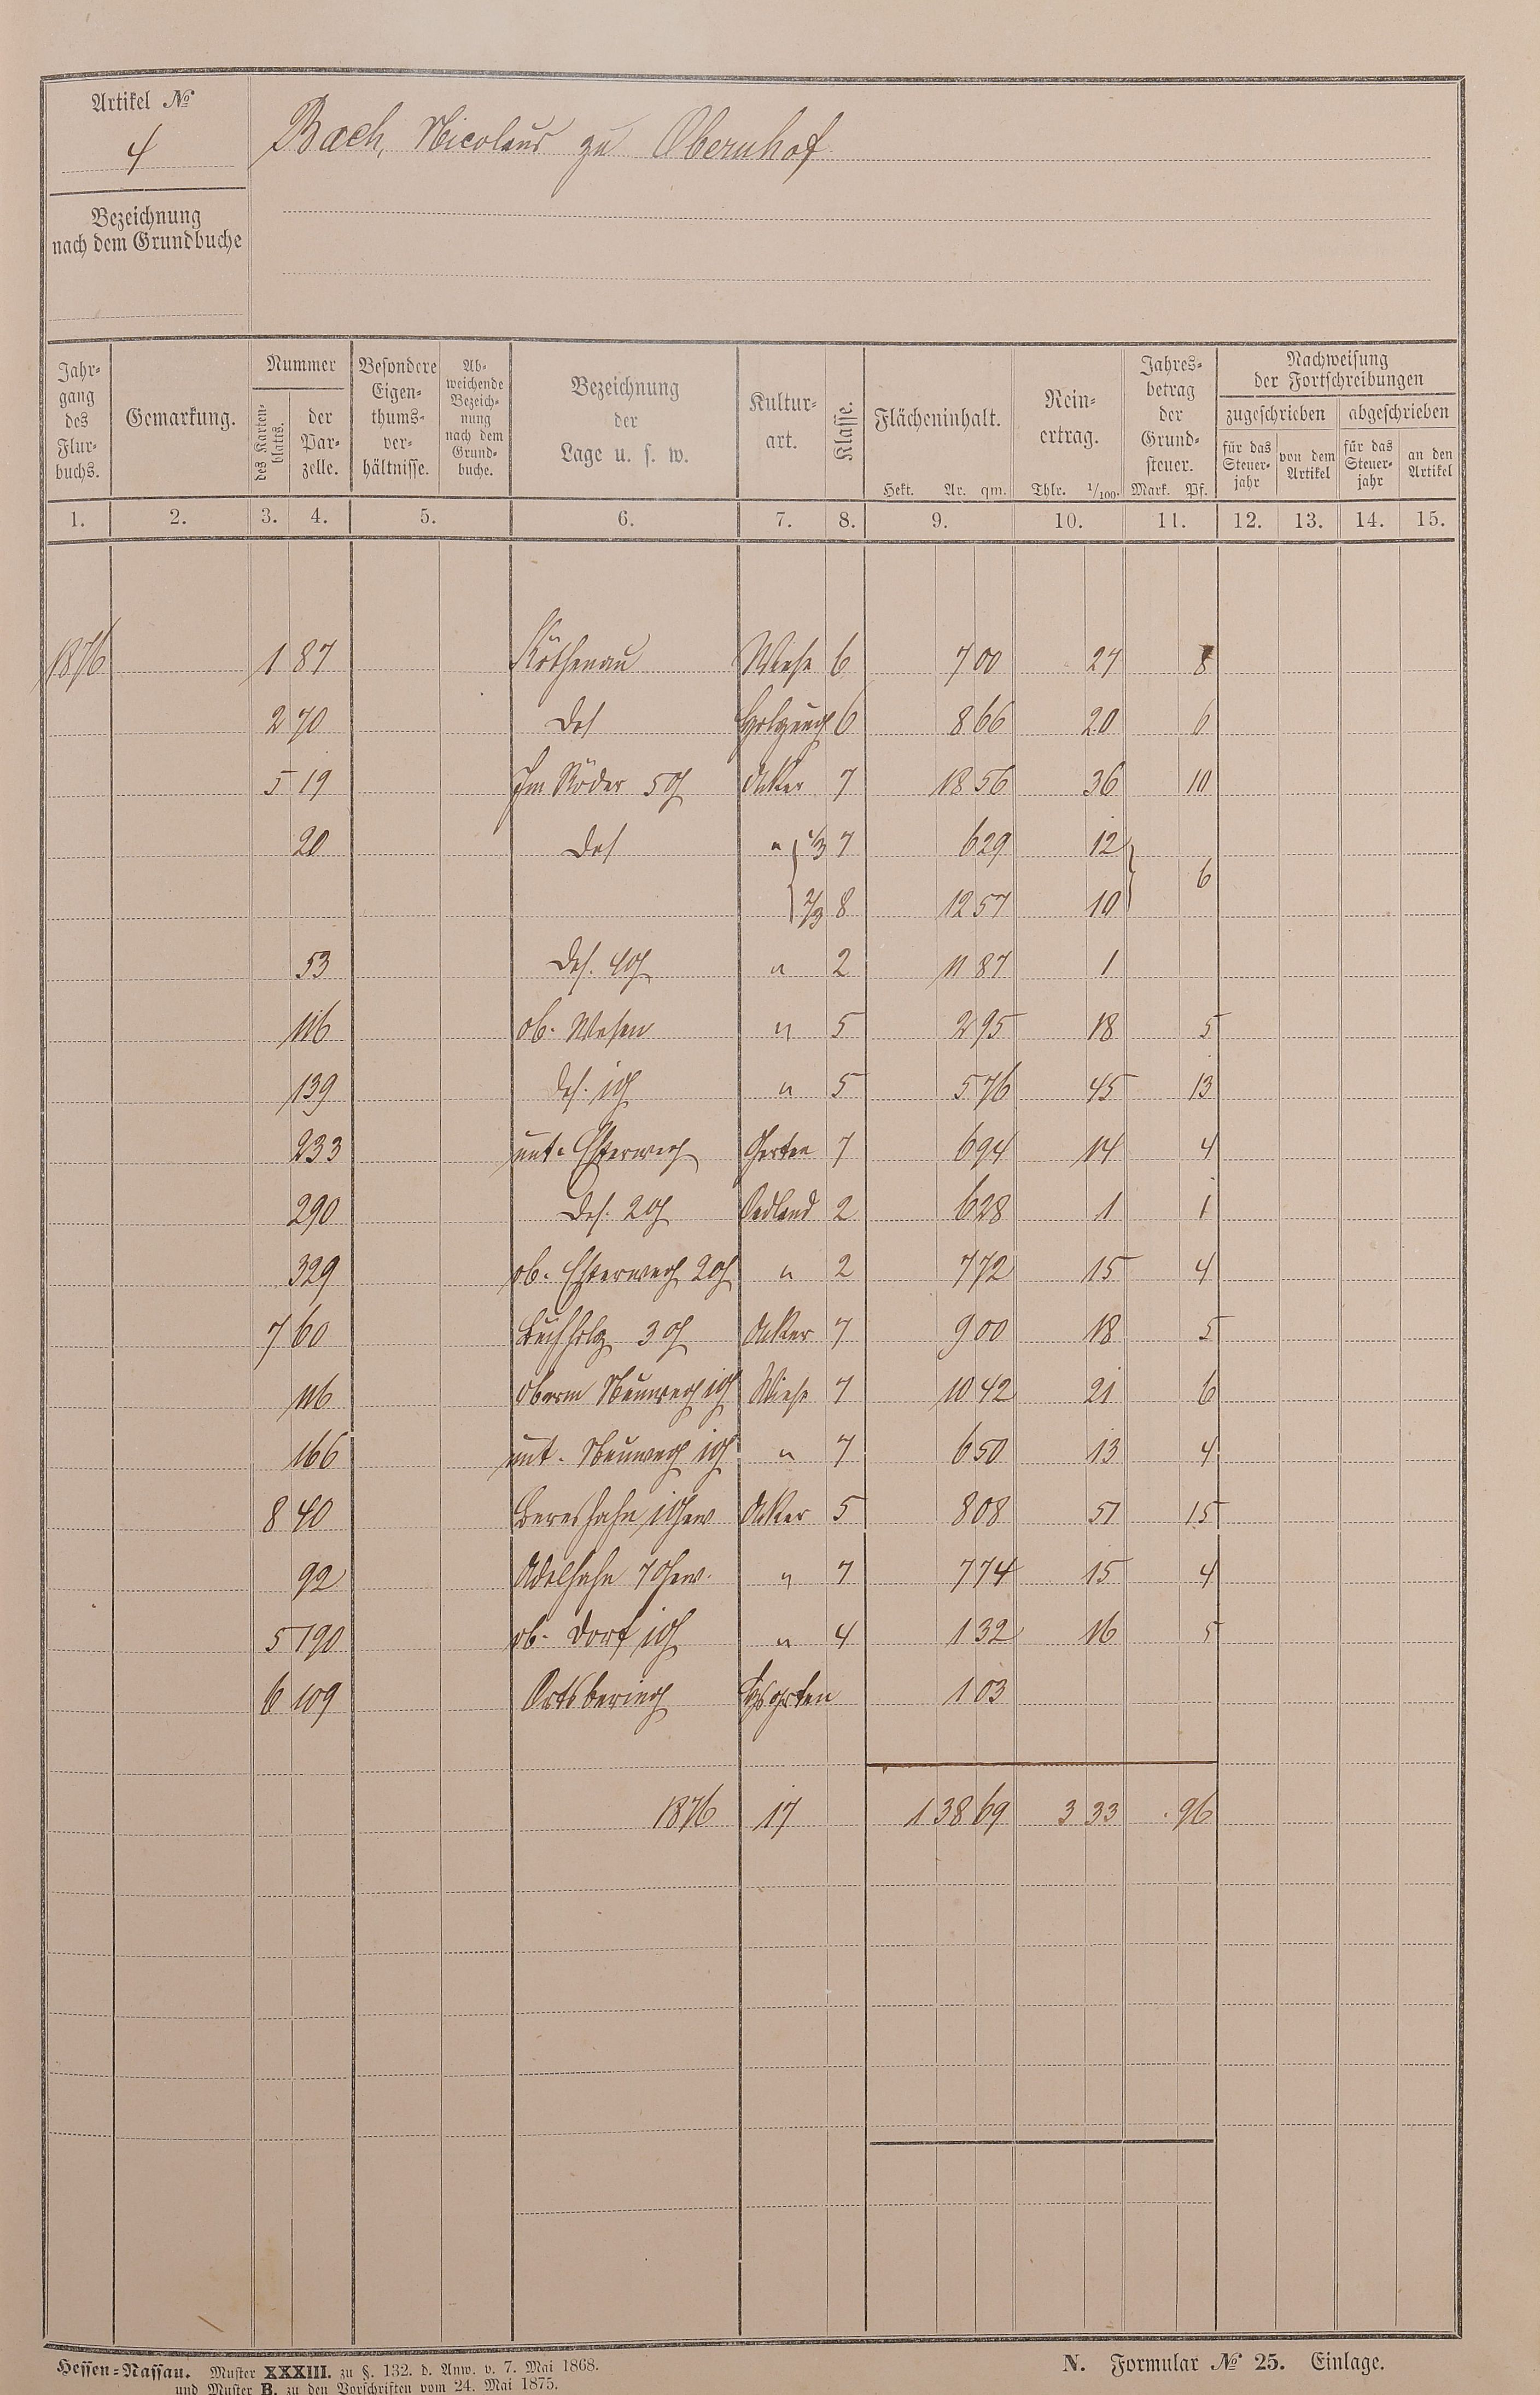 Artikel №
4
Bach, Nicolaus zu Obernhof
Bezeichnung
nach dem Grundbuche
Jahr-
gang
des
Flur-
buchs.
Gemarkung.
Nummer
des Karten-
blatts.
der
Par-
zelle.
Besondere
Eigen-
thums-
ver-
hältnisse.
Ab-
weichende
Bezeich-
nung
nach dem
Grund-
buche.
Bezeichnung
der
Lage u. s. w.
Kultur-
art.
Klasse.
Flächeninhalt.
Hekt. Ar. qm.
Rein-
ertrag.
Thlr. 1/100.
Jahres-
betrag
der
Grund-
steuer.
Mark. Pf.
Nachweisung
der Fortschreibungen
zugeschrieben abgeschrieben
für das
Steuer-
jahr
von dem
Artikel
für das
Steuer-
jahr
an den
Artikel
1. 2. 3. 4. 5. 6. 7. 8. 9. 10. 11. 12. 13. 14. 15.
1876 1 87 Röthenau Wiese 6 7 00 27 8
2 70 das Holzung 6 8 66 20 6
5 19 Im Röder 5 Acker 7 18 56 36 10
20 das " 1/3 7 6 29 12
2/3 8 12 57 10 6
53 das. 4 " 2 11 87 1
116 ob. Wesen " 5 2 95 18 5
139 das. 1 " 5 5 76 45 13
233 unt. Garten 7 6 94 14 4
290 das. 2 Oedland 2 6 28 1 1
329 ob. 2 " 2 7 72 15 4
7 60 Buchholz 3 Acker 7 9 00 18 5
116 Oberm Neuweg 1 Wiese 7 10 42 21 6
166 unt. Neuweg 1 " 7 6 50 13 4
8 40 1 Acker 5 8 08 51 15
92 Adelhahn 7 " 7 7 74 15 4
5 190 ob. Dorf 1 " 4 1 32 16 5
6 109 Ortsbering Hsgarten 1 03
1876 17 1 38 69 3 33 . 96
Hessen-Nassau. Muster XXXIII. zu §. 132. d. Anw. v. 7. Mai 1868.
und Muster B. zu den Vorschriften vom 24. Mai 1875.
N. Formular № 25. Einlage.